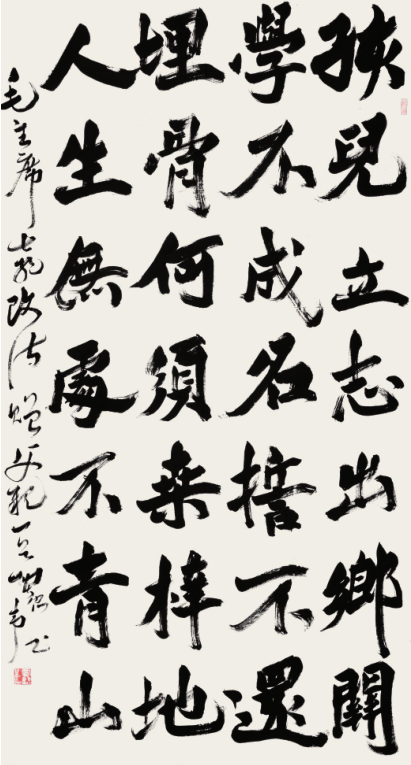 孩兒立志出鄉關
學不成名誓不還
埋骨何須桑梓地
人生無處不青山
毛主席七絕改詩贈父親